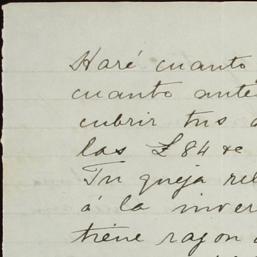 Haré cuanto
cuanto ante
cubrir tus
las £84 &c
Tu queja rel
á la inver
tiene razon